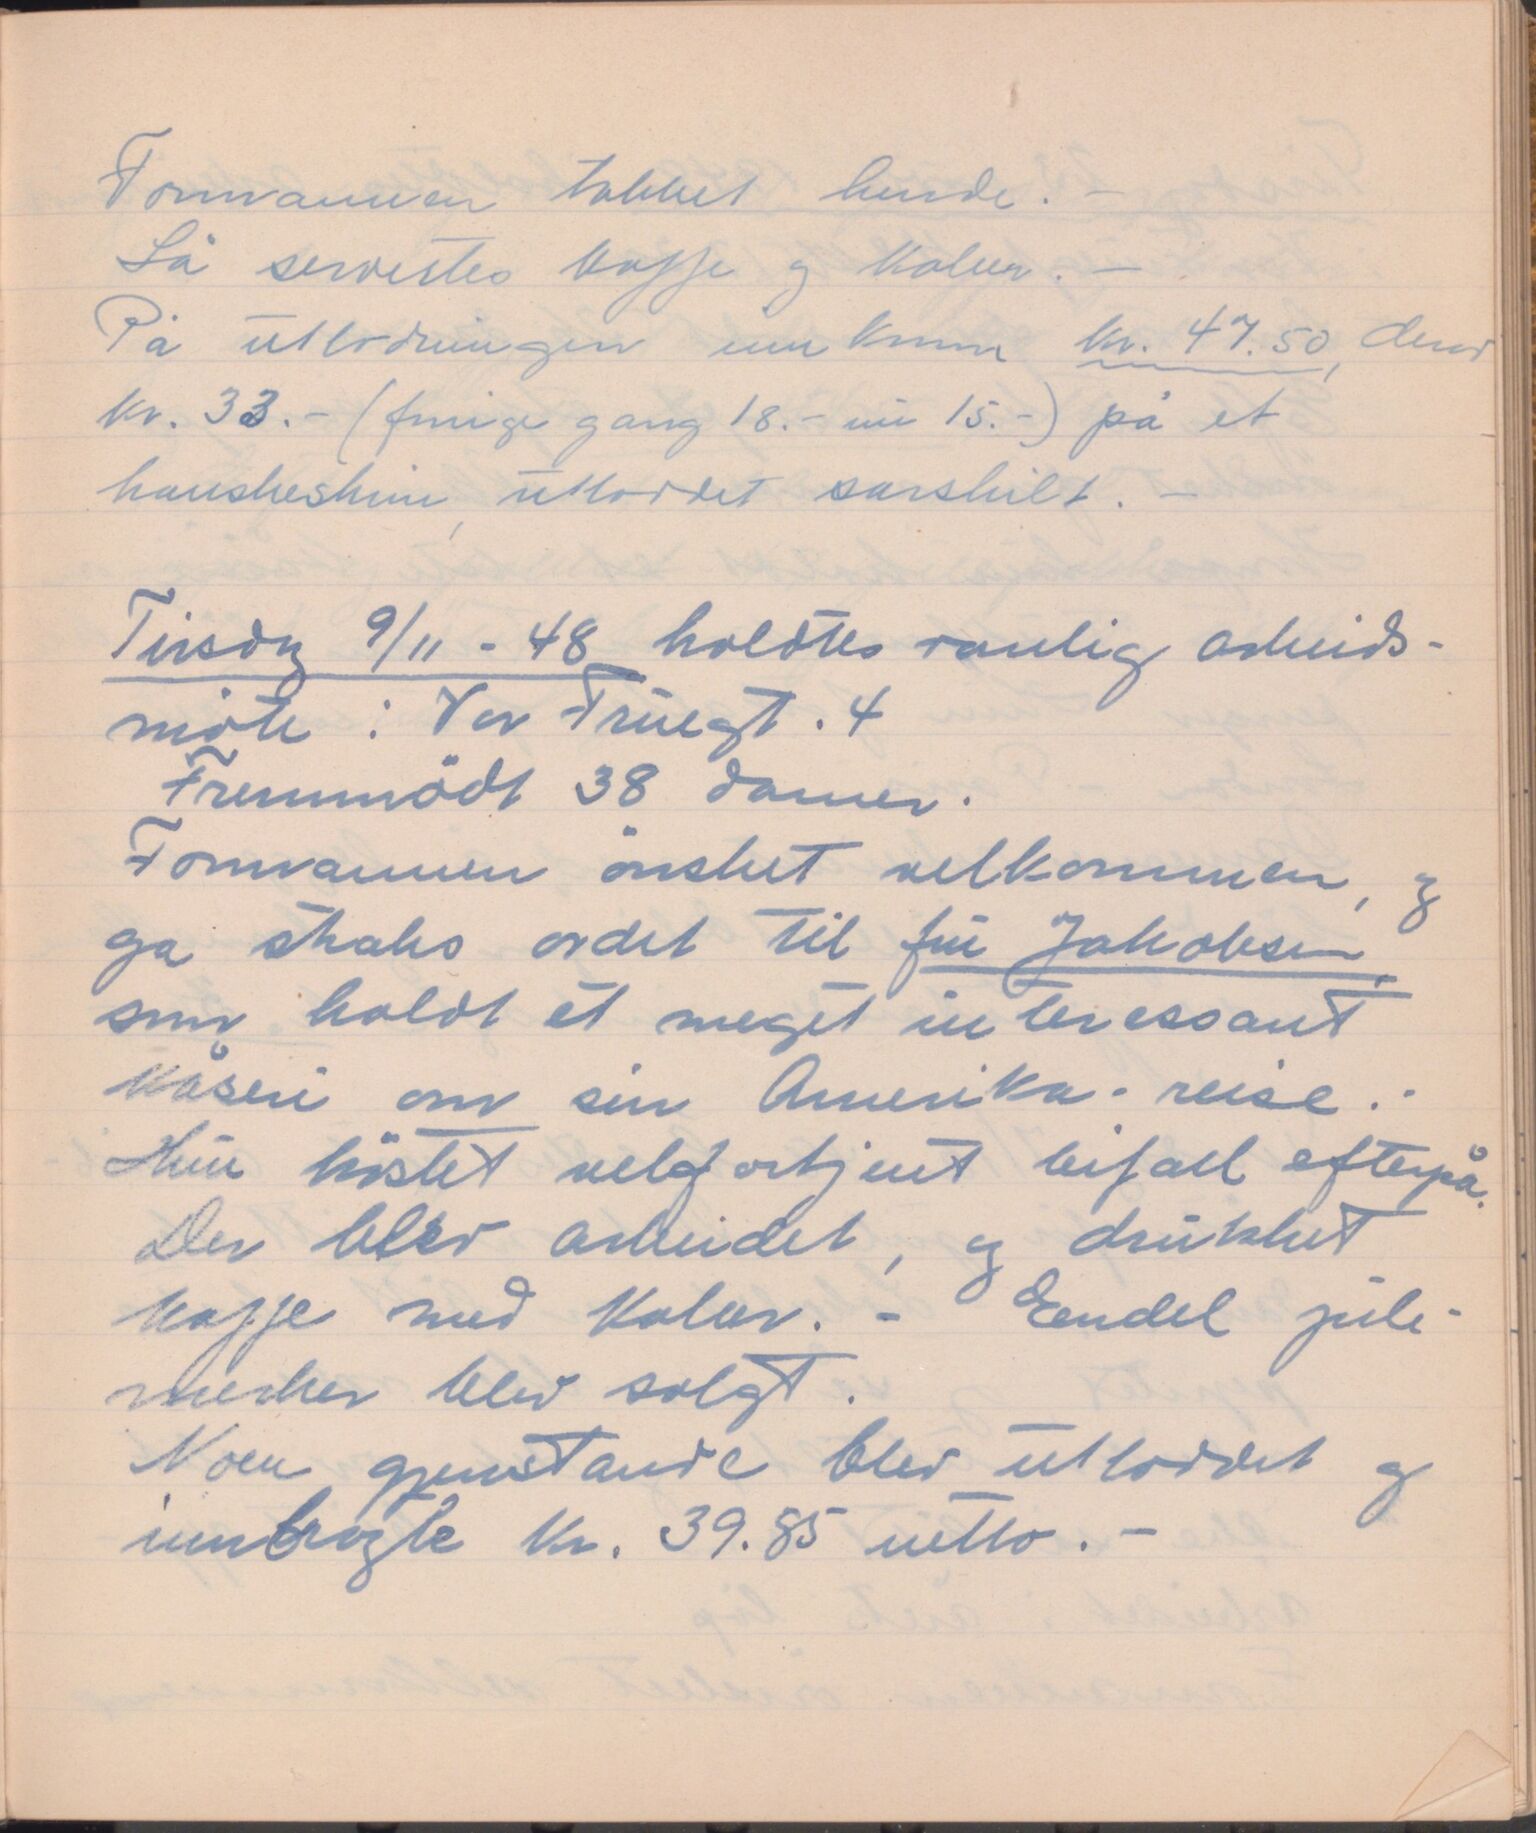 Formannen takket hende. -
Så servertes kaffe og kaker. -
På utlodningen innkom kr. 47.50, derav
kr. 33.- (forrige gang 18.- nu 15.-) på et
hanskeskinn, utloddet særskilt. -
Tirsdag 9/11 - 48 holdtes vanlig arbeids-
möte i Vor Fruegt. 4
Fremmödt 38 damer.
Formannen önsket velkommen, og
ga straks ordet til fru Jakobsen,
som holdt et meget interessant
kåseri om sin Amerika-reise. -
Hun höstet velfortjent bifall efterpå.
Der blev arbeidet, og drukket
kaffe med kaker. - Endel jule-
merker blev solgt.
Noen gjenstande blev utloddet og
innbragte kr. 39.85 netto. -